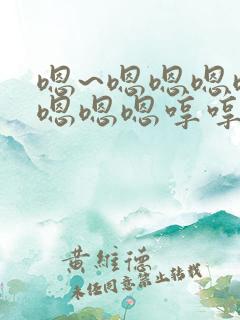 嗯~嗯嗯嗯
嗯嗯嗯哼哼
黄維德
未经同意禁止转载